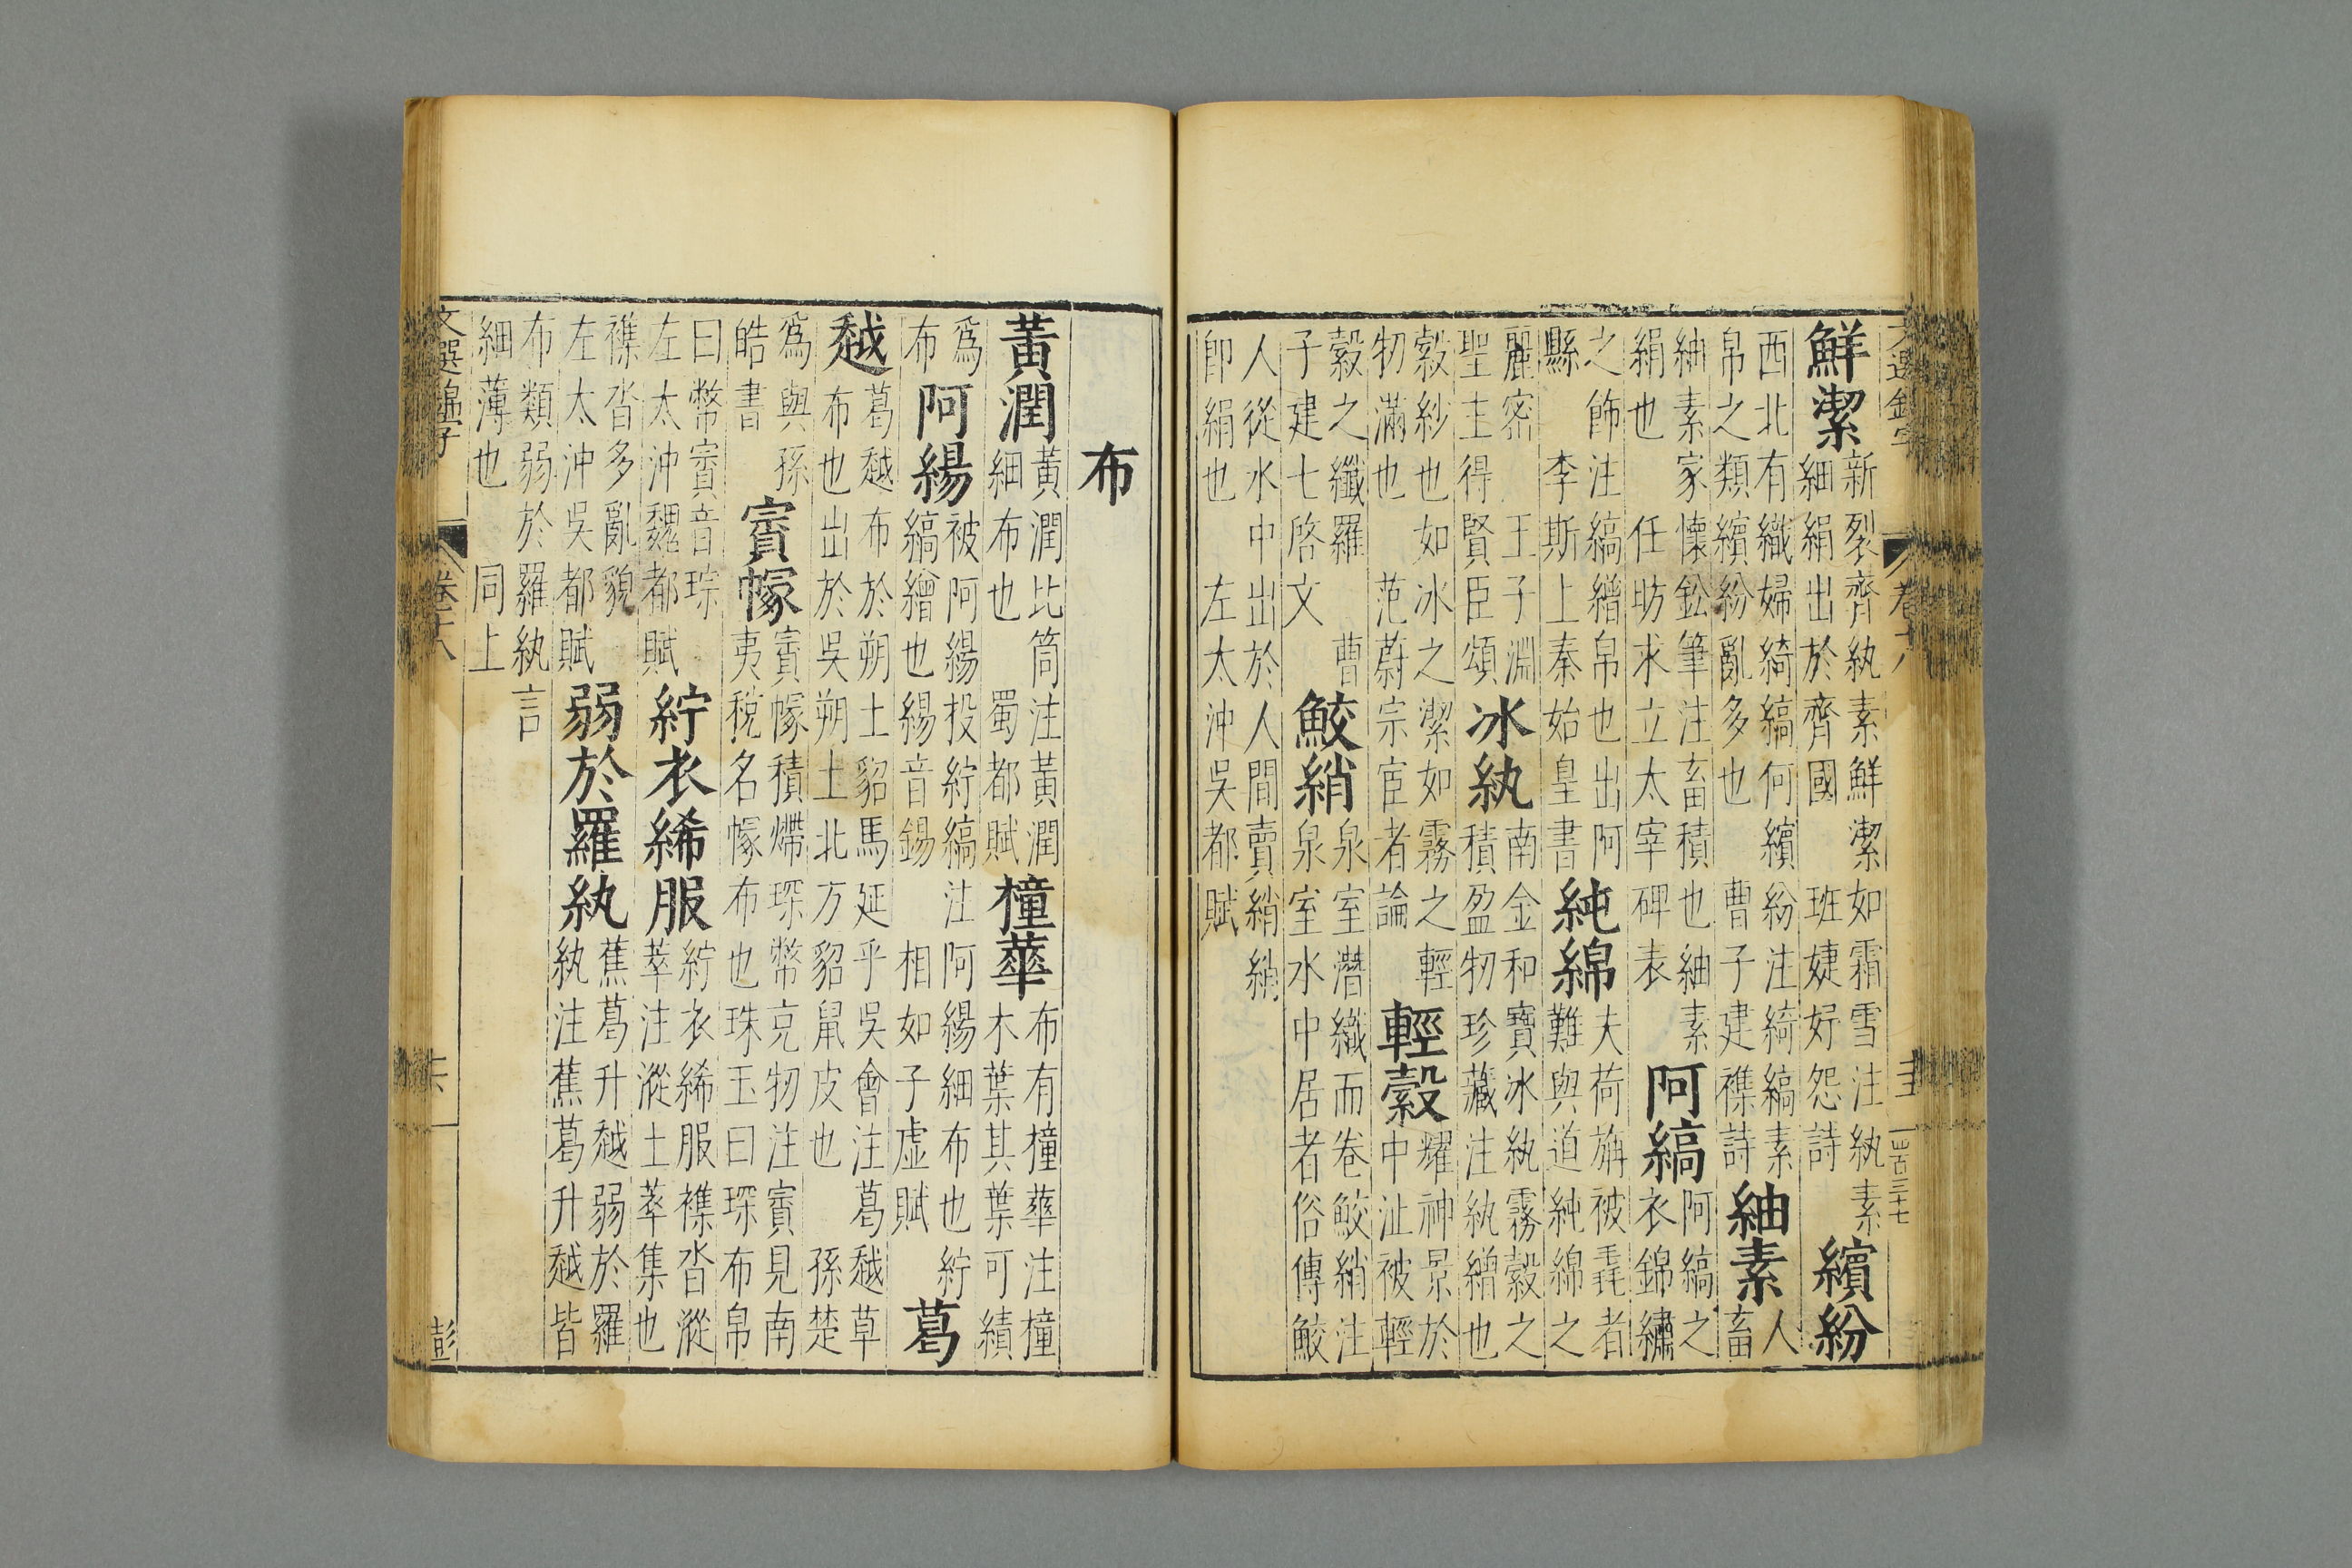 鮮潔 新裂齊紈素鮮潔如霜雪注紈素 細絹出於齊國 班婕妤怨詩 繽紛
西北有織婦綺縞何繽紛注綺縞素 帛之類繽紛亂多也 曹子建襍詩 紬素 人 畜
紬素家懷鈆筆注畜積也紬素 絹也 任昉求立太宰碑表 阿縞 阿縞之 衣錦繡
之飾注縞繒帛也出阿 縣 李斯上秦始皇書 純綿 夫荷旃被毳者 難與道純綿之
麗密 王子淵 聖主得賢臣頌 冰紈 南金和寶冰紈霧縠之 積盈牣珍藏注紈繒也
縠紗也如冰之潔如霧之輕 牣滿也 范蔚宗宦者論 輕縠 耀神景於 中沚被輕
縠之纖羅 曹 子建七啓文 鮫綃 泉室潛織而卷鮫綃注 泉室水中居者俗傳鮫
人從水中出於人間賣綃綃 卽絹也 左太沖吳都賦
布
黃潤 黃潤比筒注黃潤 細布也 蜀都賦 橦華 布有橦華注橦 木葉其葉可績
爲 布 阿緆 被阿緆投紵縞注阿緆細布也紵 縞繒也緆音錫 相如子虛賦 葛
越 葛越布於朔土貂馬延乎吳會注葛越草 布也出於吳朔土北方貂鼠皮也 孫楚
爲與孫 皓書 賨幏 賨幏積㙜琛幣充牣注賨見南 夷稅名幏布也珠玉曰琛布帛
曰幣賨音琮 左太沖魏都賦 紵衣絺服 紵衣絺服襍沓漎 萃注漎土萃集也
襍沓多亂貌 左太沖吳都賦 弱於羅紈 蕉葛升越弱於羅 紈注蕉葛升越皆
布類弱於羅紈言 細薄也 同上
文選錦字 卷十八 彭